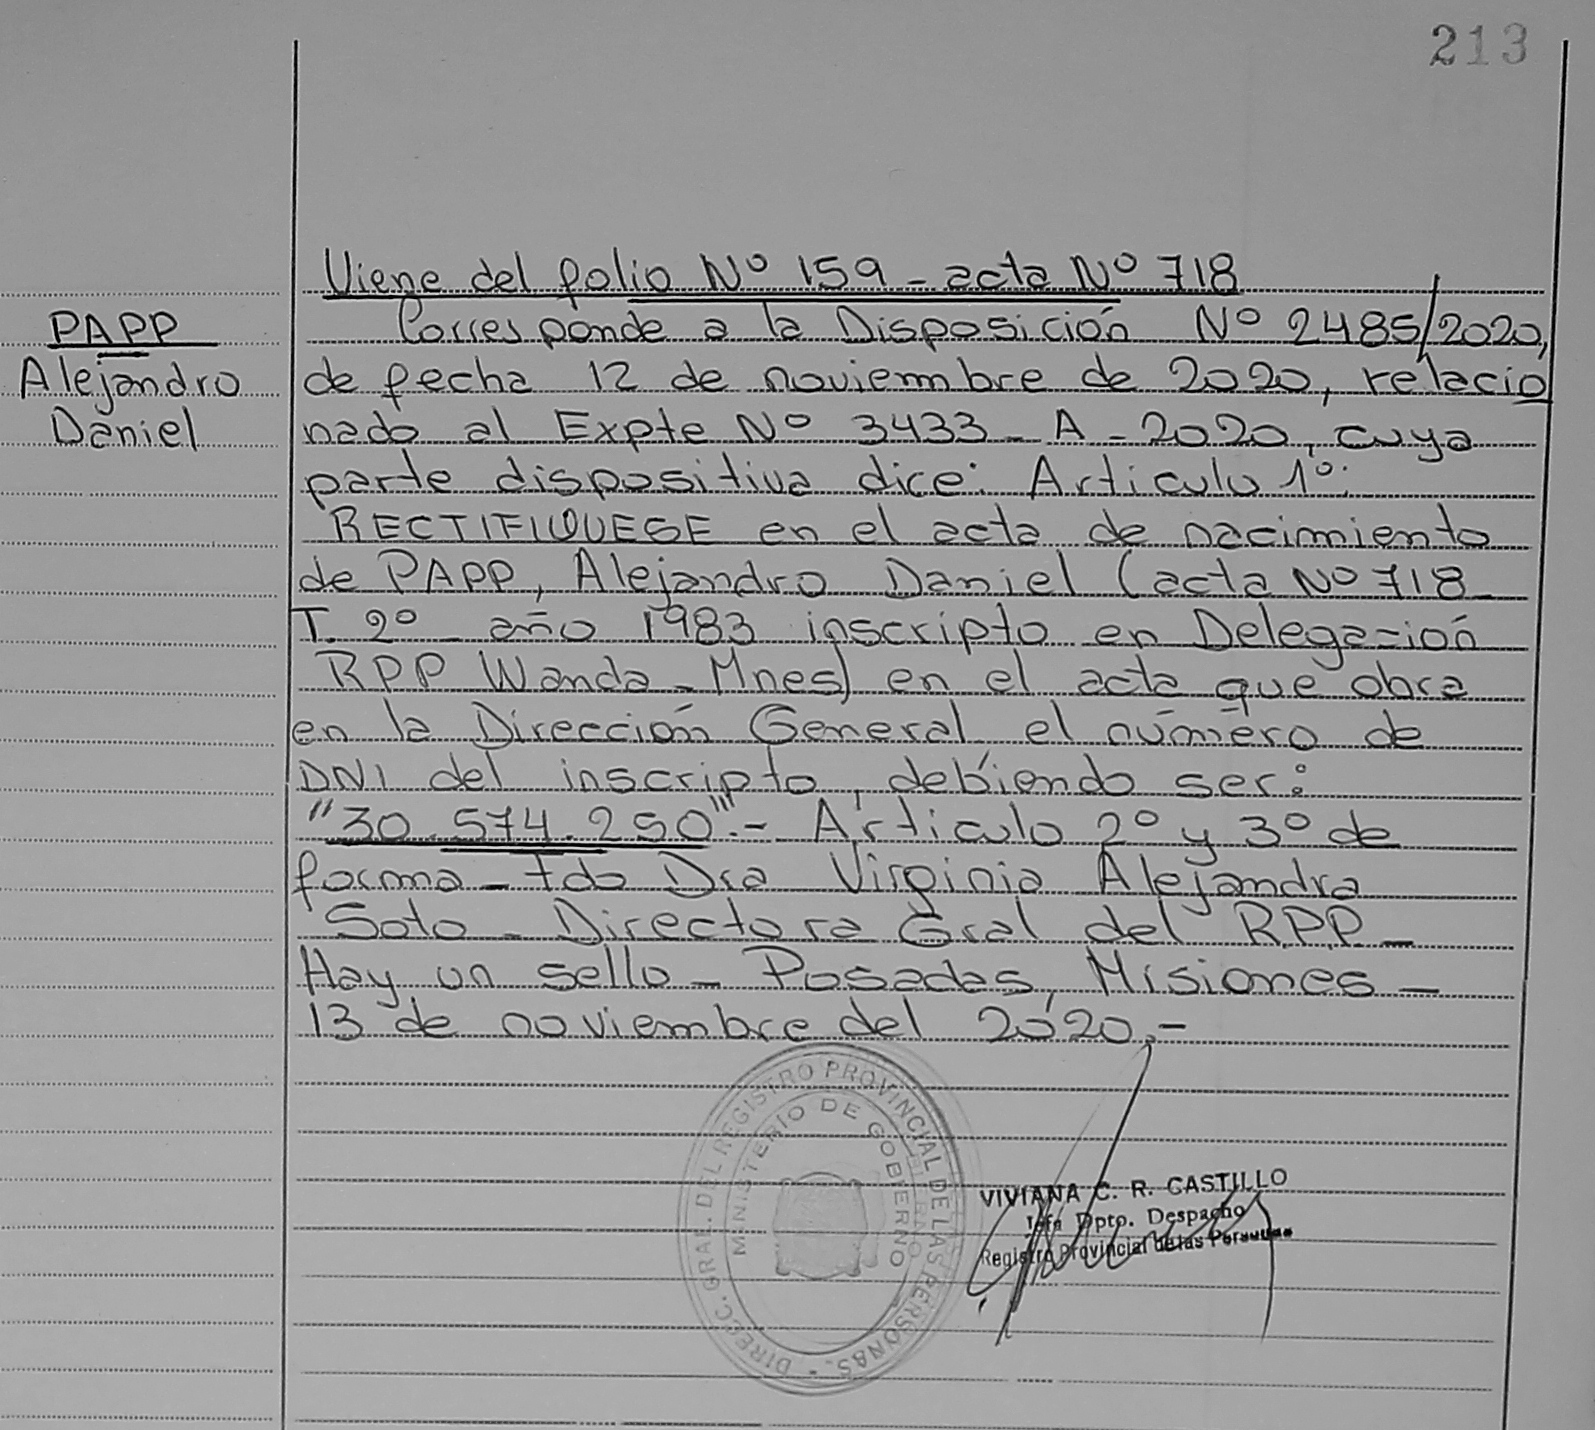 213
Viene del folio Nº 159 - acta Nº 718
PAPP
Alejandro
Daniel
Corresponde a la Disposición Nº 2485/2020,
de fecha 12 de noviembre de 2020, relacio
nado al Expte Nº 3433 - A - 2020, cuya
parte dispositiva dice: Articulo 1º:
RECTIFIQUESE en el acta de nacimiento
de PAPP, Alejandro Daniel (acta Nº 718
T. 2º año 1983 inscripto en Delegación
RPP Wanda - Mnes) en el acta que obra
en la Dirección General el número de
DNI del inscripto, debiendo ser:
"30.574.250".- Articulo 2º y 3º de
forma - Fdo Dra Virginia Alejandra
Soto - Directora Gral del RPP -
Hay un sello - Posadas, Misiones -
13 de noviembre del 2020.-
DIRECC. GRAL. DEL REGISTRO PROVINCIAL DE LAS PERSONAS -
MINISTERIO DE GOBIERNO
VIVIANA C. R. CASTILLO
Jefa Dpto. Despacho
Registro Provincial de las Personas